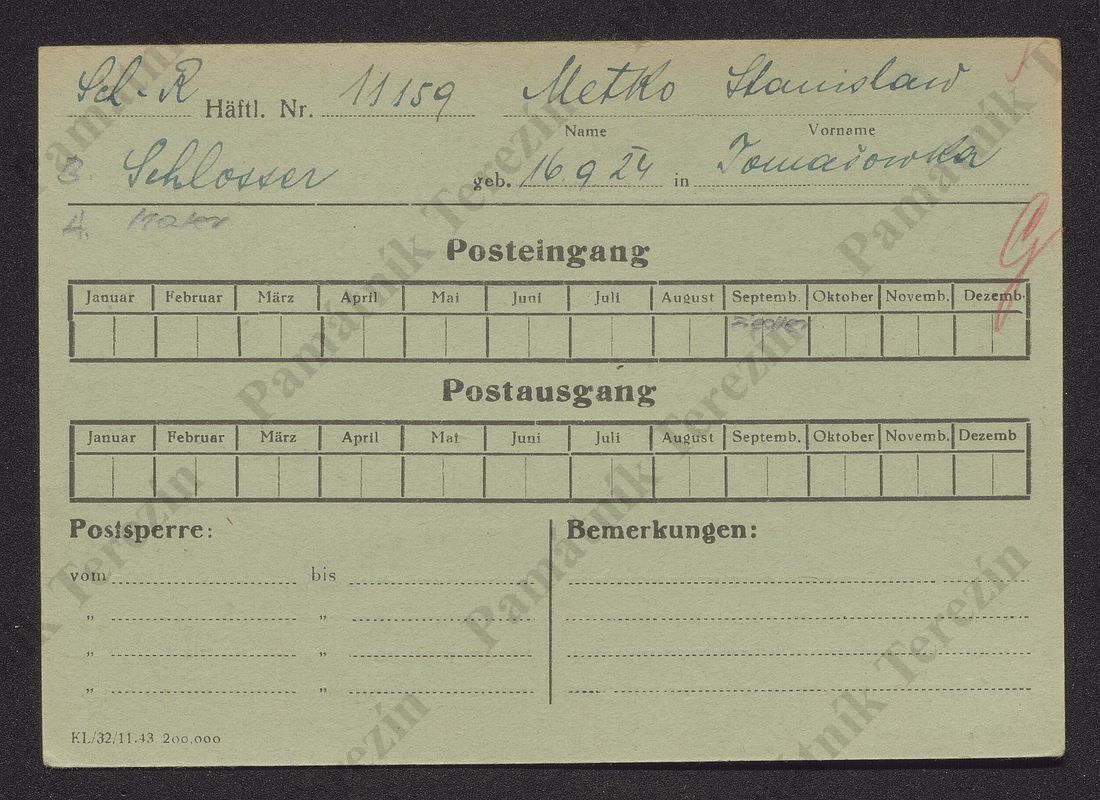 Sch-R Häftl. Nr. 11159 Metko Stanislaw
Name Vorname
B. Schlosser geb. 16.9.24 in Tomašowka
A. Maler
Posteingang
Januar Februar März April Mai Juni Juli August Septemb. Oktober Novemb. Dezemb.
Postausgang
Januar Februar März April Mai Juni Juli August Septemb. Oktober Novemb. Dezemb
Postsperre: Bemerkungen:
vom bis
„ „
„ „
„ „
KL/32/11.43 200,000
Památník Terezín